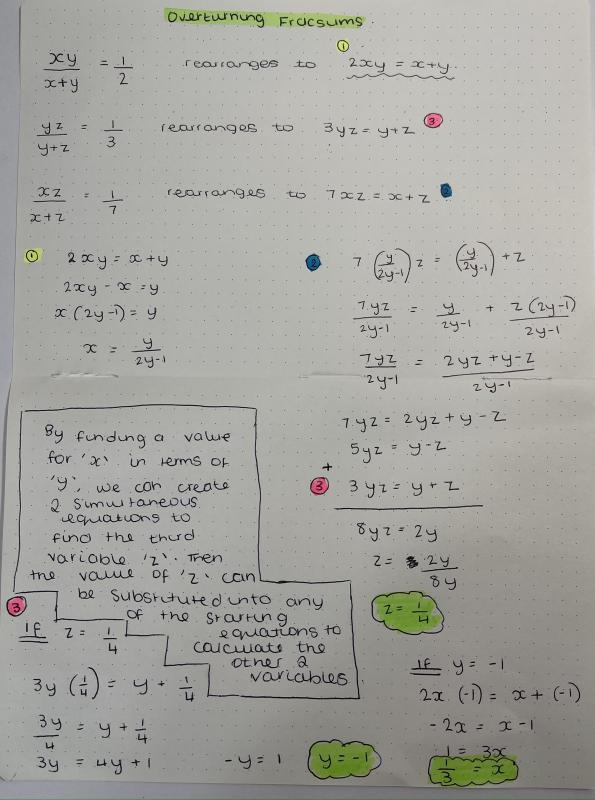 Overturning Fracsums
xy/x+y = 1/2 rearranges to ① 2xy = x+y.
yz/y+z = 1/3 rearranges to 3yz = y+z ③
xz/x+z = 1/7 rearranges to 7xz = x+z ②
① 2xy = x+y
2xy - x = y
x(2y-1) = y
x = y/2y-1
② 7(y/2y-1)z = (y/2y-1) + z
7yz/2y-1 = y/2y-1 + z(2y-1)/2y-1
7yz/2y-1 = 2yz+y-z/2y-1
7yz = 2yz + y - z
5yz = y-z
+
③ 3yz = y+z
8yz = 2y
z = 2y/8y
z = 1/4
By funding a value
for 'x' in terms of
'y', we can create
2 simultaneous
equations to
find the third
variable 'z'. Then
the value of 'z' can
be substituted into any
of the starting
equations to
calculate the
other 2
variables
③
If z = 1/4
3y(1/4) = y + 1/4
3y/4 = y + 1/4
3y = 4y + 1
-y = 1
y = -1
If y = -1
2x(-1) = x + (-1)
-2x = x - 1
1 = 3x
1/3 = x